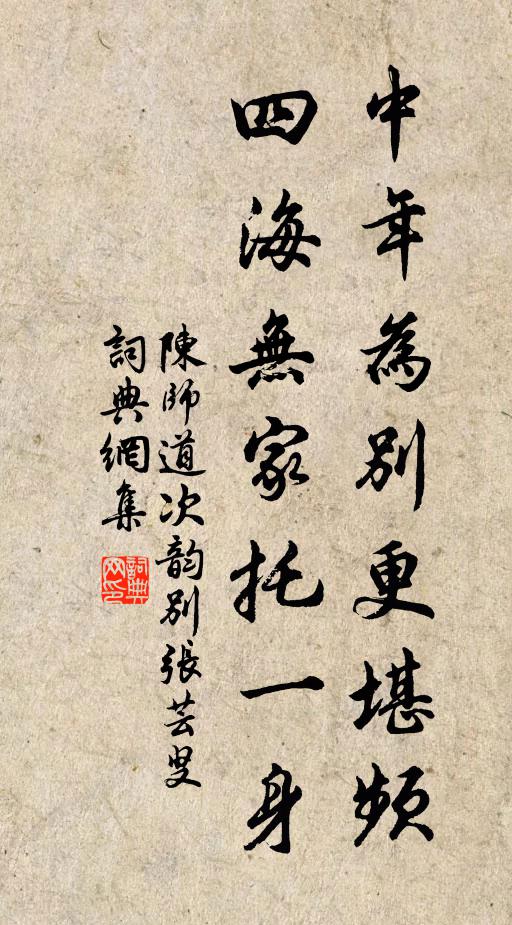 中年為別更堪頻
四海無家托一身
陳師道次韵別張芸叟
詞典網集
詞典網印